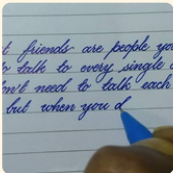 t friends are people yo
o talk to every single
on't need to talk each
but when you d